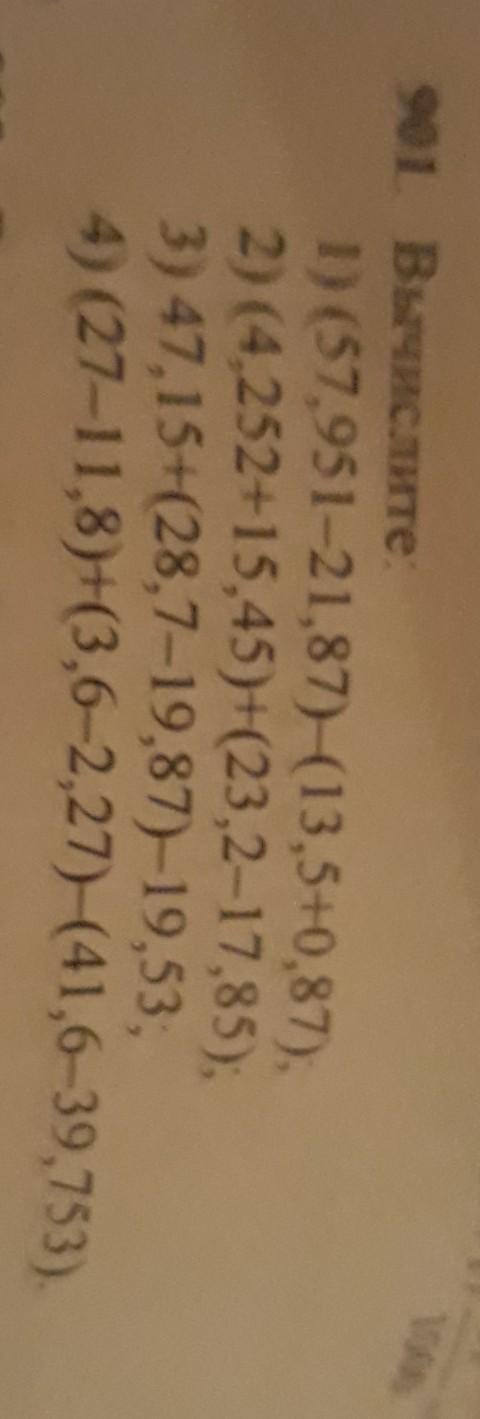 901. Вычислите:
1) (57,951–21,87)–(13,5+0,87);
2) (4,252+15,45)+(23,2–17,85);
3) 47,15+(28,7–19,87)–19,53;
4) (27–11,8)+(3,6–2,27)–(41,6–39,753).